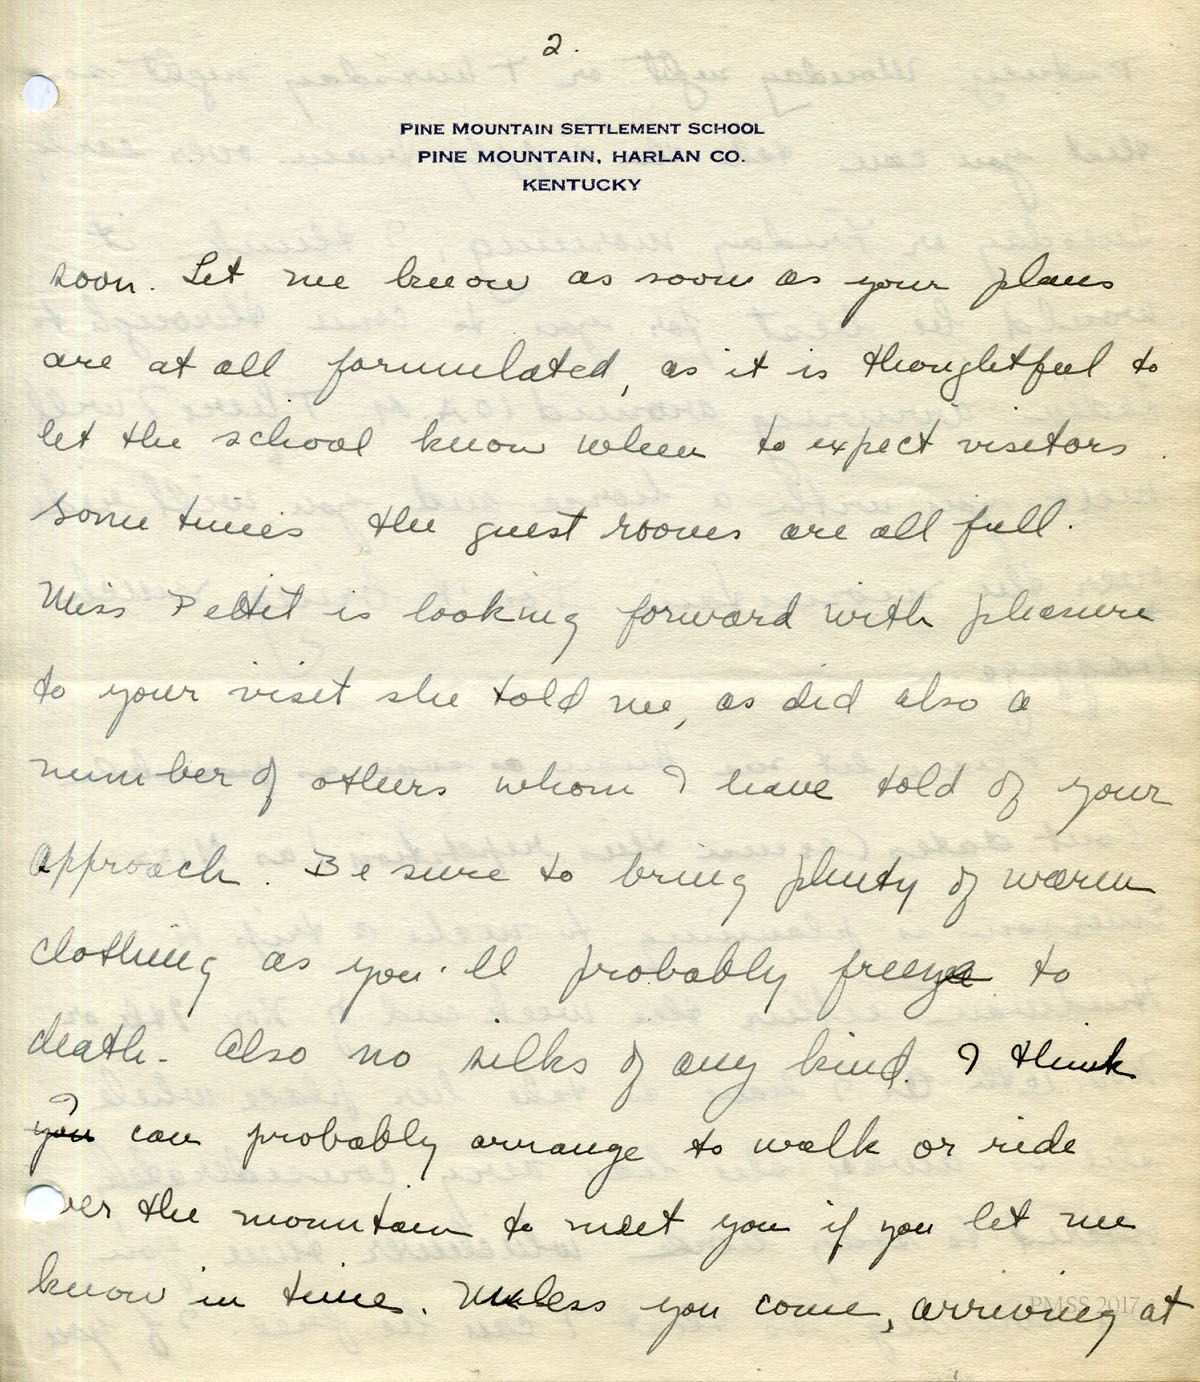 2.
PINE MOUNTAIN SETTLEMENT SCHOOL
PINE MOUNTAIN, HARLAN CO.
KENTUCKY
soon. Let me know as soon as your plans
are at all formulated, as it is thoughtful to
let the school know when to expect visitors.
Sometimes the guest rooms are all full.
Miss Pettit is looking forward with pleasure
to your visit she told me, as did also a
number of others whom I have told of your
approach. Be sure to bring plenty of warm
clothing as you'll probably freeze to
death. Also no silks of any kind. I think
I
you can probably arrange to walk or ride
ver the mountain to meet you if you let me
know in time. Unless you come, arriving at
PMSS 2017